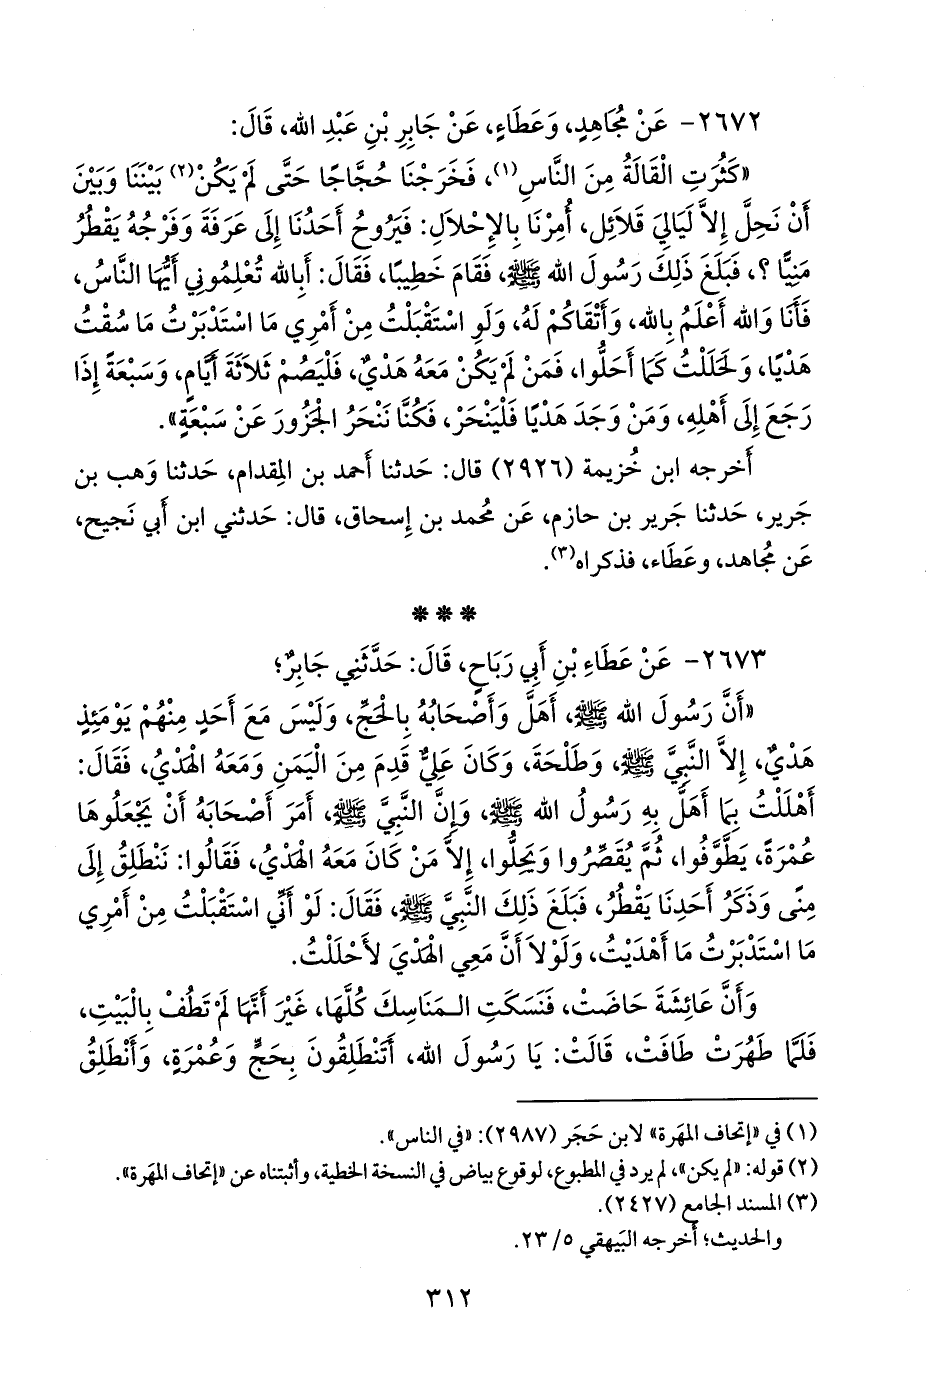 ٢٦٧٢- عَنْ مُجَاهِدٍ، وَعَطَاءٍ، عَنْ جَابِرِ بْنِ عَبْدِ الله، قَالَ:
«كَثُرَتِ الْقَالَةُ مِنَ النَّاسِ(١)، فَخَرَجْنَا حُجَّاجًا حَتَّى لَمْ يَكُنْ(٢) بَيْنَنَا وَبَيْنَ
أَنْ نَحِلَّ إِلاَّ لَيَالِيَ قَلاَئِل، أُمِرْنَا بِالإِحْلاَلِ: فَيَرُوحُ أَحَدُنَا إِلَى عَرَفَةَ وَفَرْجُهُ يَقْطُرُ
مَنِيًّا ؟، فَبَلَغَ ذَلِكَ رَسُولَ الله ﷺ، فَقَامَ خَطِيبًا، فَقَالَ: أَبِالله تُعْلِمُونِي أَيُّهَا النَّاسُ،
فَأَنَا وَالله أَعْلَمُ بِالله، وَأَتْقَاكُمْ لَهُ، وَلَوِ اسْتَقْبَلْتُ مِنْ أَمْرِي مَا اسْتَدْبَرْتُ مَا سُقْتُ
هَدْيًا، وَلَحَلَلْتُ كَمَا أَحَلُّوا، فَمَنْ لَمْ يَكُنْ مَعَهُ هَدْيٌ، فَلْيَصُمْ ثَلاَثَةَ أَيَّامٍ، وَسَبْعَةً إِذَا
رَجَعَ إِلَى أَهْلِهِ، وَمَنْ وَجَدَ هَدْيًا فَلْيَنْحَرْ، فَكُنَّا نَنْحَرُ الْجَزُورَ عَنْ سَبْعَةٍ».
أَخرجه ابن خُزيمة (٢٩٢٦) قال: حَدثنا أَحمد بن المِقدام، حَدثنا وَهب بن
جَرير، حَدثنا جَرير بن حازم، عَن مُحمد بن إِسحاق، قال: حَدثني ابن أَبي نَجيح،
عَن مُجاهد، وعَطَاء، فذكراه(٣).
* * *
٢٦٧٣- عَنْ عَطَاءِ بْنِ أَبِي رَبَاحٍ، قَالَ: حَدَّثَنِي جَابِرٌ؛
«أَنَّ رَسُولَ الله ﷺ، أَهَلَّ وَأَصْحَابُهُ بِالْحَجِّ، وَلَيْسَ مَعَ أَحَدٍ مِنْهُمْ يَوْمَئِذٍ
هَدْيٌ، إِلاَّ النَّبِيَّ ﷺ، وَطَلْحَةَ، وَكَانَ عَلِيٌّ قَدِمَ مِنَ الْيَمَنِ وَمَعَهُ الْهَدْيُ، فَقَالَ:
أَهْلَلْتُ بِمَا أَهَلَّ بِهِ رَسُولُ الله ﷺ، وَإِنَّ النَّبِيَّ ﷺ، أَمَرَ أَصْحَابَهُ أَنْ يَجْعَلُوهَا
عُمْرَةً، يَطَّوَّفُوا، ثُمَّ يُقَصِّرُوا وَيَحِلُّوا، إِلاَّ مَنْ كَانَ مَعَهُ الْهَدْيُ، فَقَالُوا: نَنْطَلِقُ إِلَى
مِنًى وَذَكَرُ أَحَدِنَا يَقْطُرُ، فَبَلَغَ ذَلِكَ النَّبِيَّ ﷺ، فَقَالَ: لَوْ أَنِّي اسْتَقْبَلْتُ مِنْ أَمْرِي
مَا اسْتَدْبَرْتُ مَا أَهْدَيْتُ، وَلَوْلاَ أَنَّ مَعِي الْهَدْيَ لأَحْلَلْتُ.
وَأَنَّ عَائِشَةَ حَاضَتْ، فَنَسَكَتِ الْمَنَاسِكَ كُلَّهَا، غَيْرَ أَنَّهَا لَمْ تَطُفْ بِالْبَيْتِ،
فَلَمَّا طَهُرَتْ طَافَتْ، قَالَتْ: يَا رَسُولَ الله، أَتَنْطَلِقُونَ بِحَجٍّ وَعُمْرَةٍ، وَأَنْطَلِقُ
(١) في «إتحاف المهَرة» لابن حَجَر (٢٩٨٧): «في الناس».
(٢) قوله: «لم يكن»، لم يرد في المطبوع، لوقوع بياض في النسخة الخطية، وأثبتناه عن «إتحاف المهَرة».
(٣) المسند الجامع (٢٤٢٧).
والحديث؛ أخرجه البَيهقي ٥/ ٢٣.
٣١٢